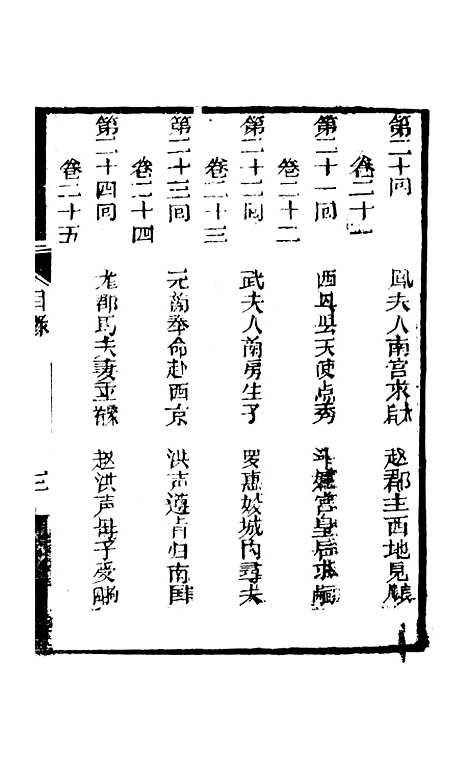 第二十回 凤夫人南宫求 赵郡主西地见娘
卷二十一
第二十一回 西 县天使点秀 斗 宫皇后求
卷二十二
第二十二回 武夫人南房生子 罗惠姣城内寻夫
卷二十三
第二十三回 元 奉命赴西京 洪声遵旨归南国
卷二十四
第二十四回 郡马夫妻 赵洪声母子受
卷二十五
目录
三